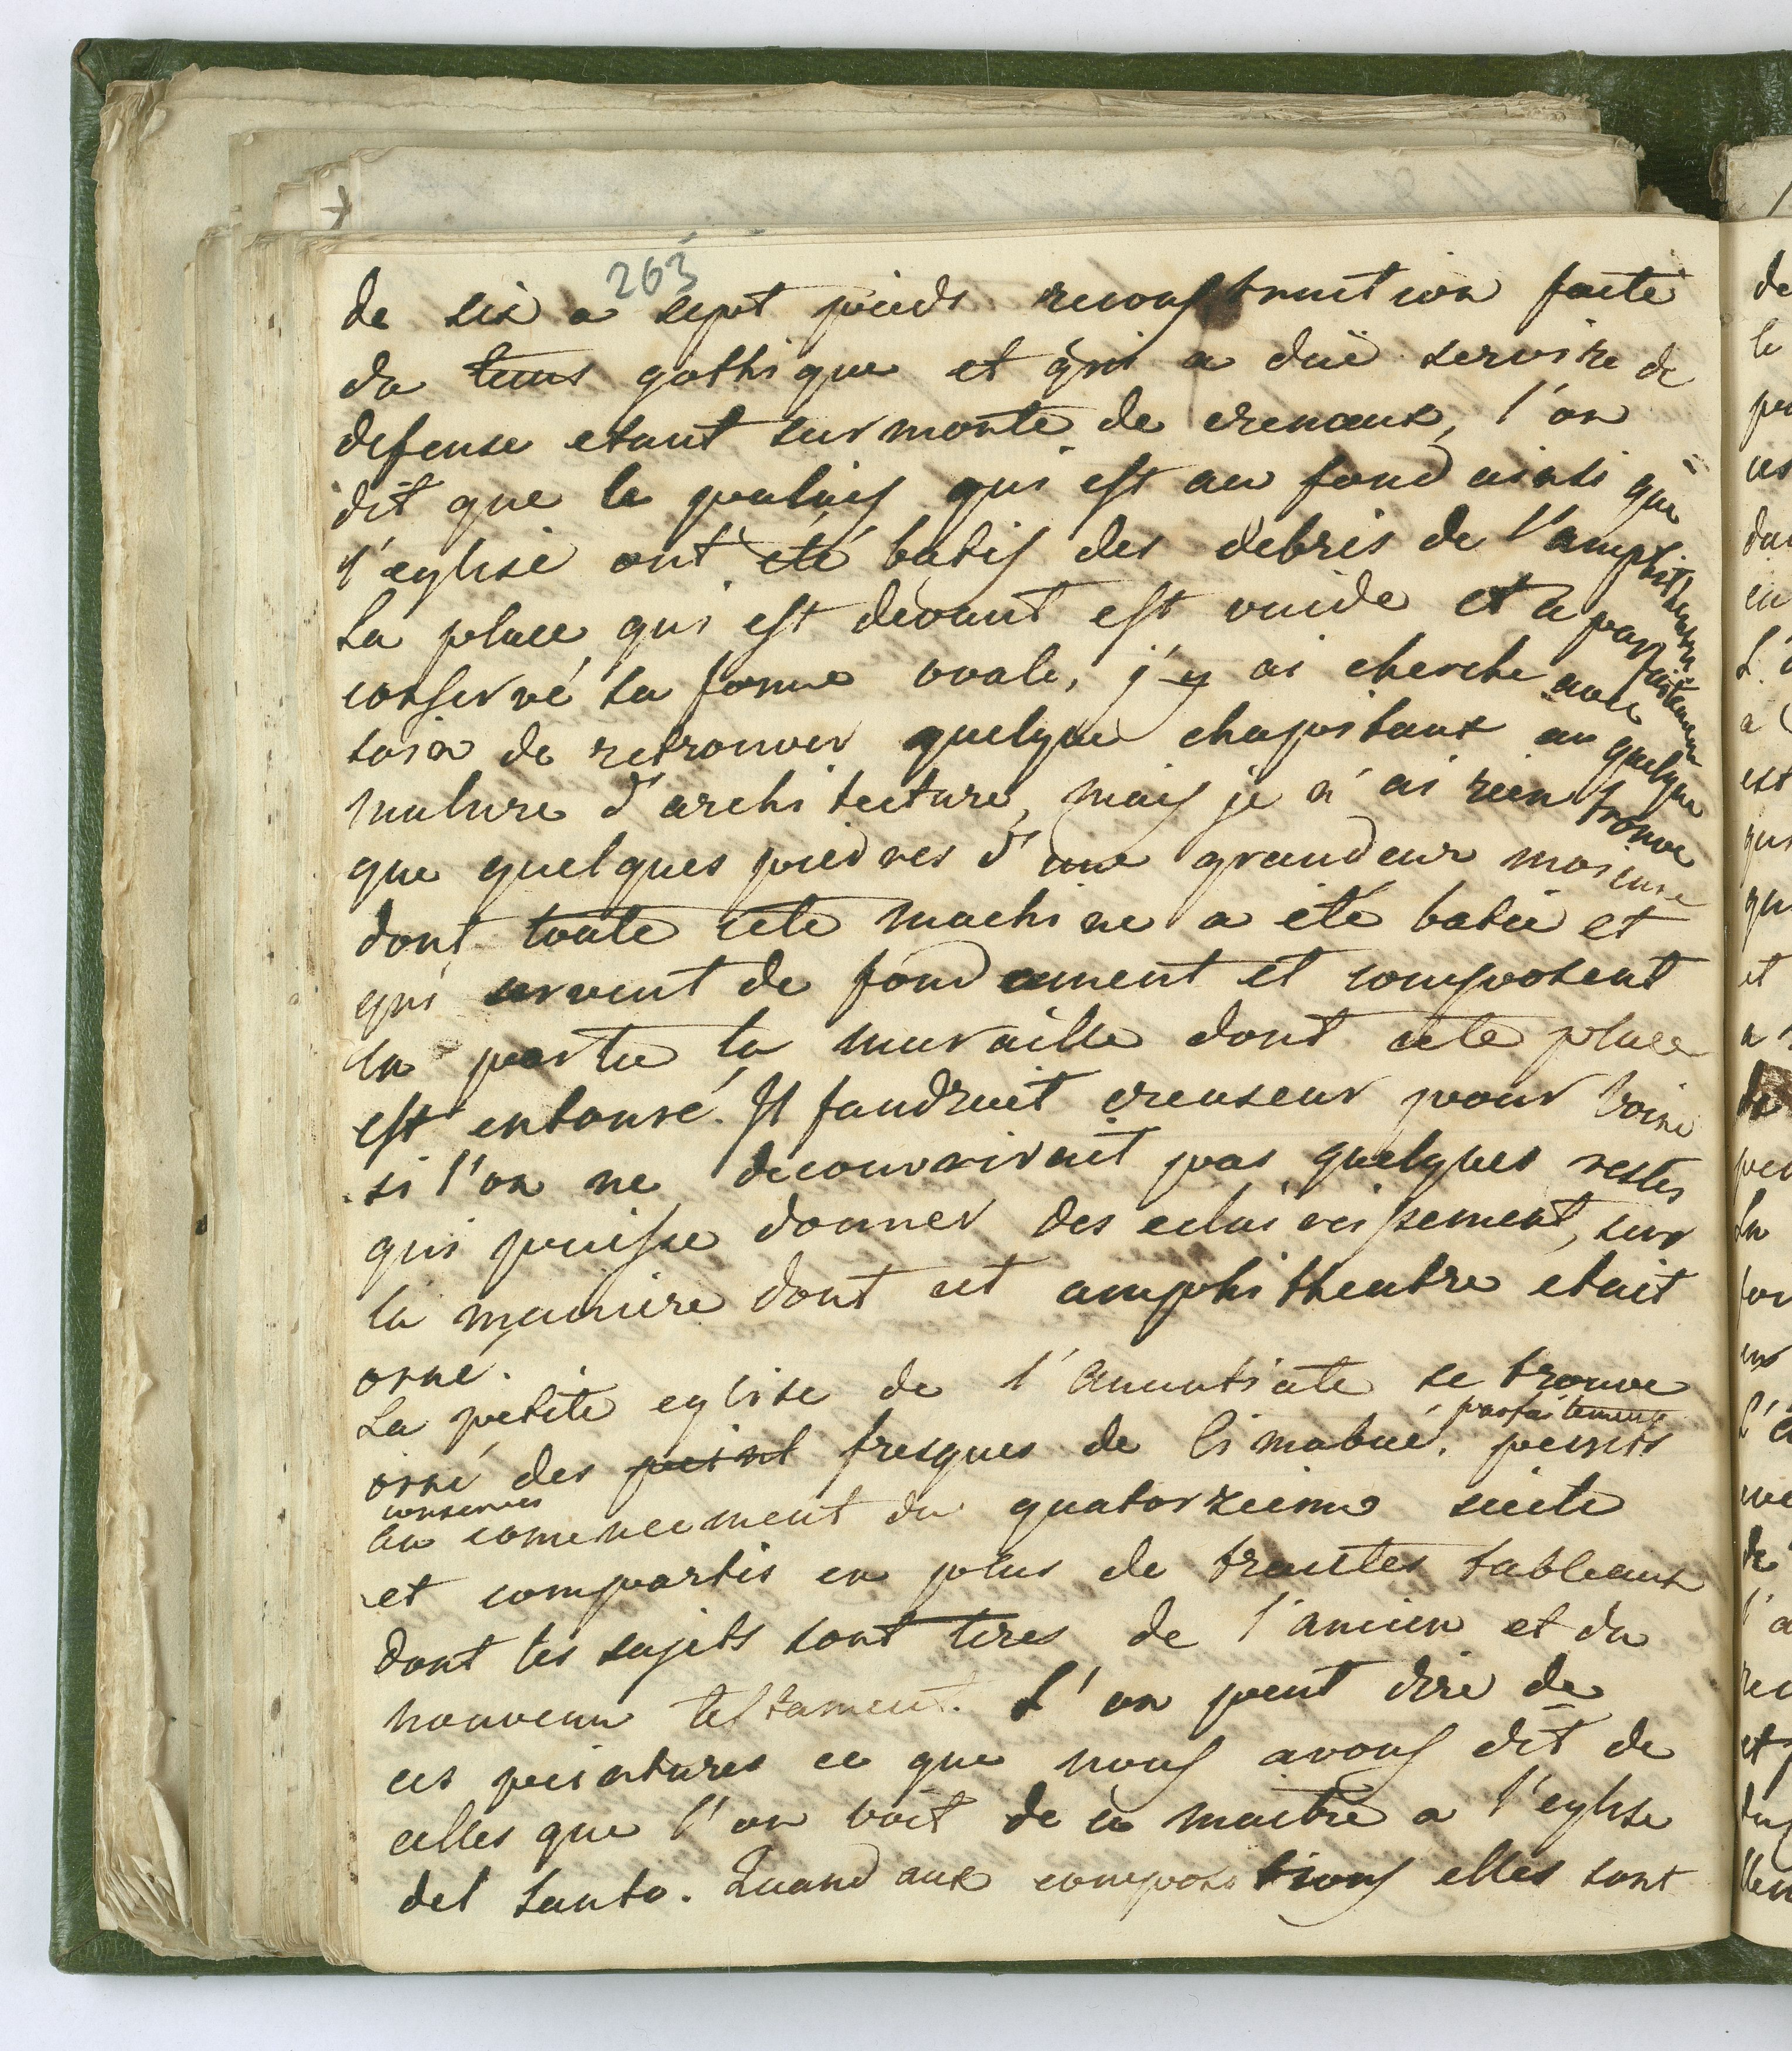 263
de six a sept pieds reconstruction faite
du tems gothique et qui a duë servire de
defense etant surmonte de crenaux, l'on
dit que le palais qui est au fond ainsi que
l'eglise ont été batis des debris de l'amphitheatre
La place qui est devant est vuide et a parfaitement
conservé sa forme ovale, j'y ai cherche avec
soin de retrouver quelque chapitaux ou quelque
mulure d'architecture, mais je n'ai rien trouve
que quelques pierres d'une grandeur
dont toute cete machine a été batie et
qui servent de fondement et composent
en partie la muraille dont cete place
est entouré. Il faudrait creuseur pour voire
si l'on ne decouvrirait pas quelques restes
qui puisse donner des eclaircissement, sur
la maniere dont cet amphitheatre etait
orné.
La petite eglise de l'anuntiate se trouve
parfaitement
orné des peint fresques de Cimabué, peints
conserves
au comencement du quatorzieme siecle
et compartis en plus de trantes tableaux
dont les sujets sont tires de l'ancien et du
nouveau testament. L'on peut dire de
ces peintures ce que nous avons dit de
celles que l'on voit de ce maitre a l'eglise
del Santo. Quand aux compositions elles sont